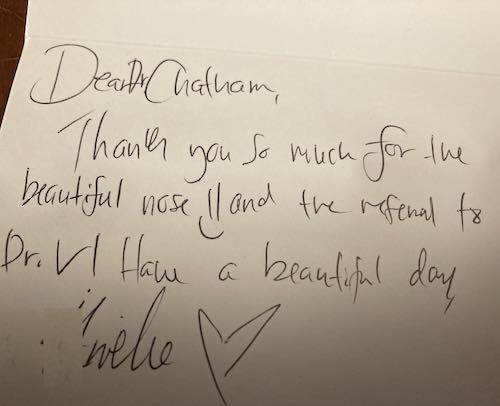 Dear Dr Chatham,
Thank you so much for the
beautiful nose !! and the referral to
Dr. V! Have a beautiful day,